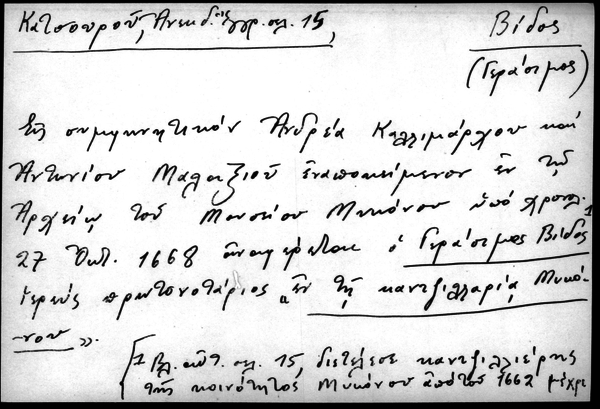 Κατσουροῦ, Ἀνεκδ. ἔγγρ. σελ. 15,
Βίδος
(Γεράσιμος)
Εἰς συμφωνητικὸν Ἀνδρέα Καλλιμάρχου καὶ
Ἀντωνίου Μαλαξιοῦ ἐναποκείμενον ἐν τῷ
Ἀρχείῳ τοῦ Μουσείου Μυκόνου ὑπὸ χρονολ.
27 Ὀκτ. 1668 ἀναφέρεται ὁ Γεράσιμος Βίδος1
ἱερεὺς πρωτονοτάριος „ἐν τῇ καντζιλλαρίᾳ Μυκό-
νου».
[1 Βλ. αὐτ. σελ. 15, διετέλεσε καντζιλλιέρης
τῆς κοινότητος Μυκόνου ἀπὸ τοῦ 1662 μέχρι